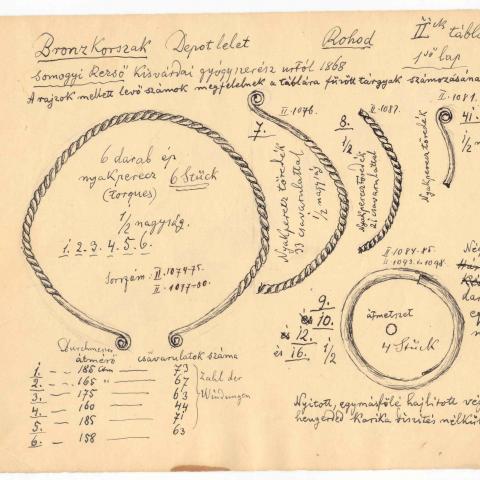 BronzKorszak Depotlelet Rohod IIik tábla
Somogyi Rezső Kisvárdai gyógyszerész urtól 1868 1ső lap
A rajzok mellett levő számok megfelelnek a táblára fűzött tárgyak számozásána
6 darab ép
nyakperecz 6 Stück
(torques)
1/2 nagyság.
1. 2. 3. 4. 5. 6.
Sorszám: II. 1074-75.
7.
II. 1076.
Nyakperecz töredék
33 csavarulattal
1/2 nagyság
8.
1/2
II. 1087.
Nyakperecz töredék
21 csavarulattal
II. 1081.
41.
1/2
Nyakperecz töredék
II. 1084-85.
9.
és 10.
és 12.
és 16. 1/2
átmetszet
4 Stück
Durchmesser
átmérő csavarulatok száma
1. - - 185 - 73
2. - - 165 " - 67
3. - - 175 - 63
4. - - 160 - 44
5. - - 185 - 71
6. - - 158 - 63
Zahl der
Windungen
Nyitott, egymásfölé hajlitott vég
hengerded Karika diszités nélkül